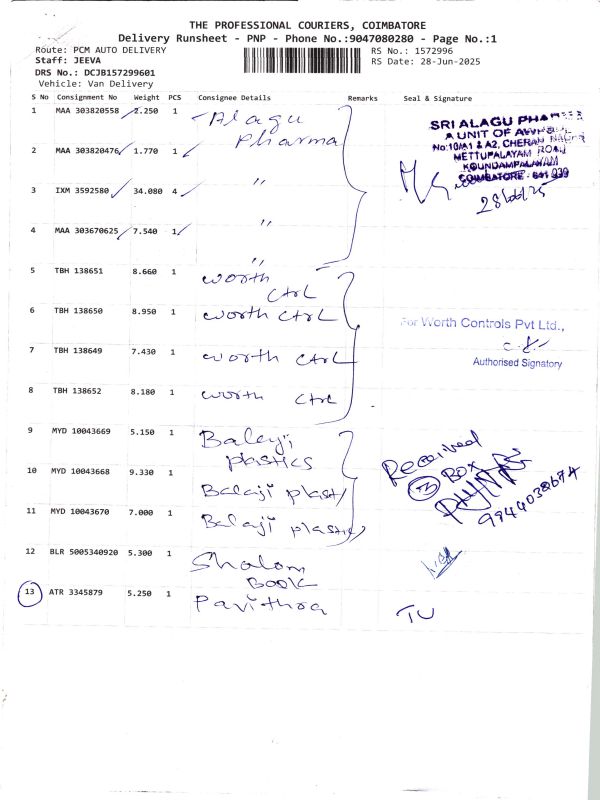 THE PROFESSIONAL COURIERS, COIMBATORE
Delivery Runsheet - PNP - Phone No.:9047080280 - Page No.:1
Route: PCM AUTO DELIVERY
RS No.: 1572996
Staff: JEEVA
RS Date: 28-Jun-2025
DRS No.: DCJB157299601
Vehicle: Van Delivery
S No Consignment No Weight PCS Consignee Details Remarks Seal & Signature
1 MAA 303820558 2.250 1 Alagu Pharma
SRI ALAGU PHARMA
A UNIT OF
No:10/A1 & A2, CHERAN NAGAR
METTUPALAYAM ROAD
KOUNDAMPALAYAM
COIMBATORE - 641 030
2 MAA 303820476 1.770 1 "
3 IXM 3592580 34.080 4 "
4 MAA 303670625 7.540 1 "
5 TBH 138651 8.660 1 worth CtrL
6 TBH 138650 8.950 1 worth CtrL
For Worth Controls Pvt Ltd.,
Authorised Signatory
7 TBH 138649 7.430 1 worth CtrL
8 TBH 138652 8.180 1 worth CtrL
9 MYD 10043669 5.150 1 Balaji plastics
Received
(3) BOX
9944038674
10 MYD 10043668 9.330 1 Balaji plast
11 MYD 10043670 7.000 1 Balaji plastics
12 BLR 5005340920 5.300 1 Shalom BOOK
13 ATR 3345879 5.250 1 Pavithra